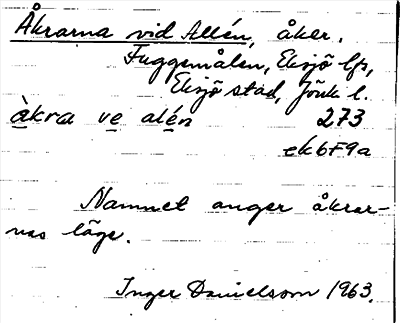 Åkrarna vid Allén, åker.
Fuggemålen, Eksjö lfs,
Eksjö stad, Jönk l.
àkra ve alén 273
ek6F9a
Namnet anger åkrar-
nas läge.
Inger Danielsson 1963.